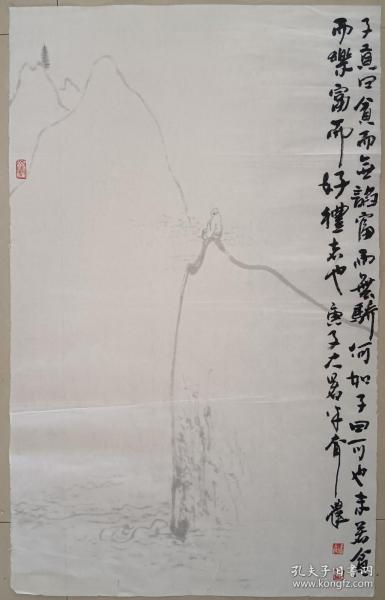 子贡曰貧而無諂富而無驕何如子曰可也未若貧
而樂富而好禮者也庚子大暑
孔夫子旧书网